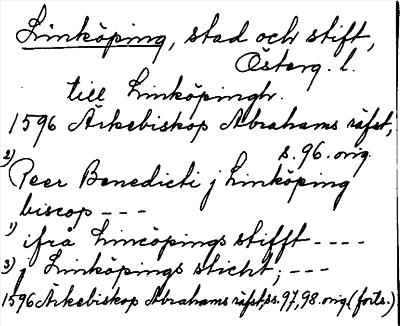 Linköping, stad och stift,
Österg. l.
till Linköpingbr.
1596 Ärkebiskop Abrahams räfst,
s. 96. orig.
2) Peer Benedicti j Linköping
biscop ---
1) ifrå Lincöpings stifft ----
3) j Linköpings sticht; ---
1596 Ärkebiskop Abrahams räfst, ss. 97, 98. orig. (forts.)